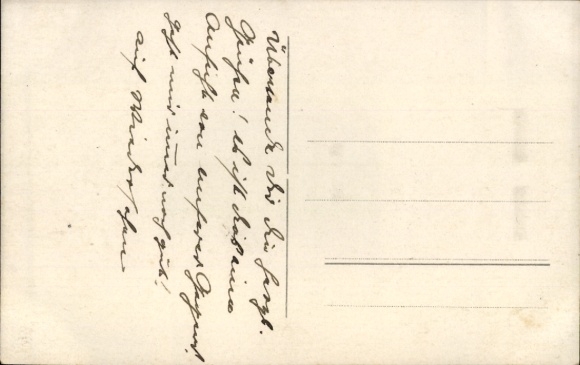 Übersende Dir die herzl.
Grüße! Es ist dies eine
Ansicht von unserer Gegend.
Geht mir immer noch gut!
Auf Wiedersehen